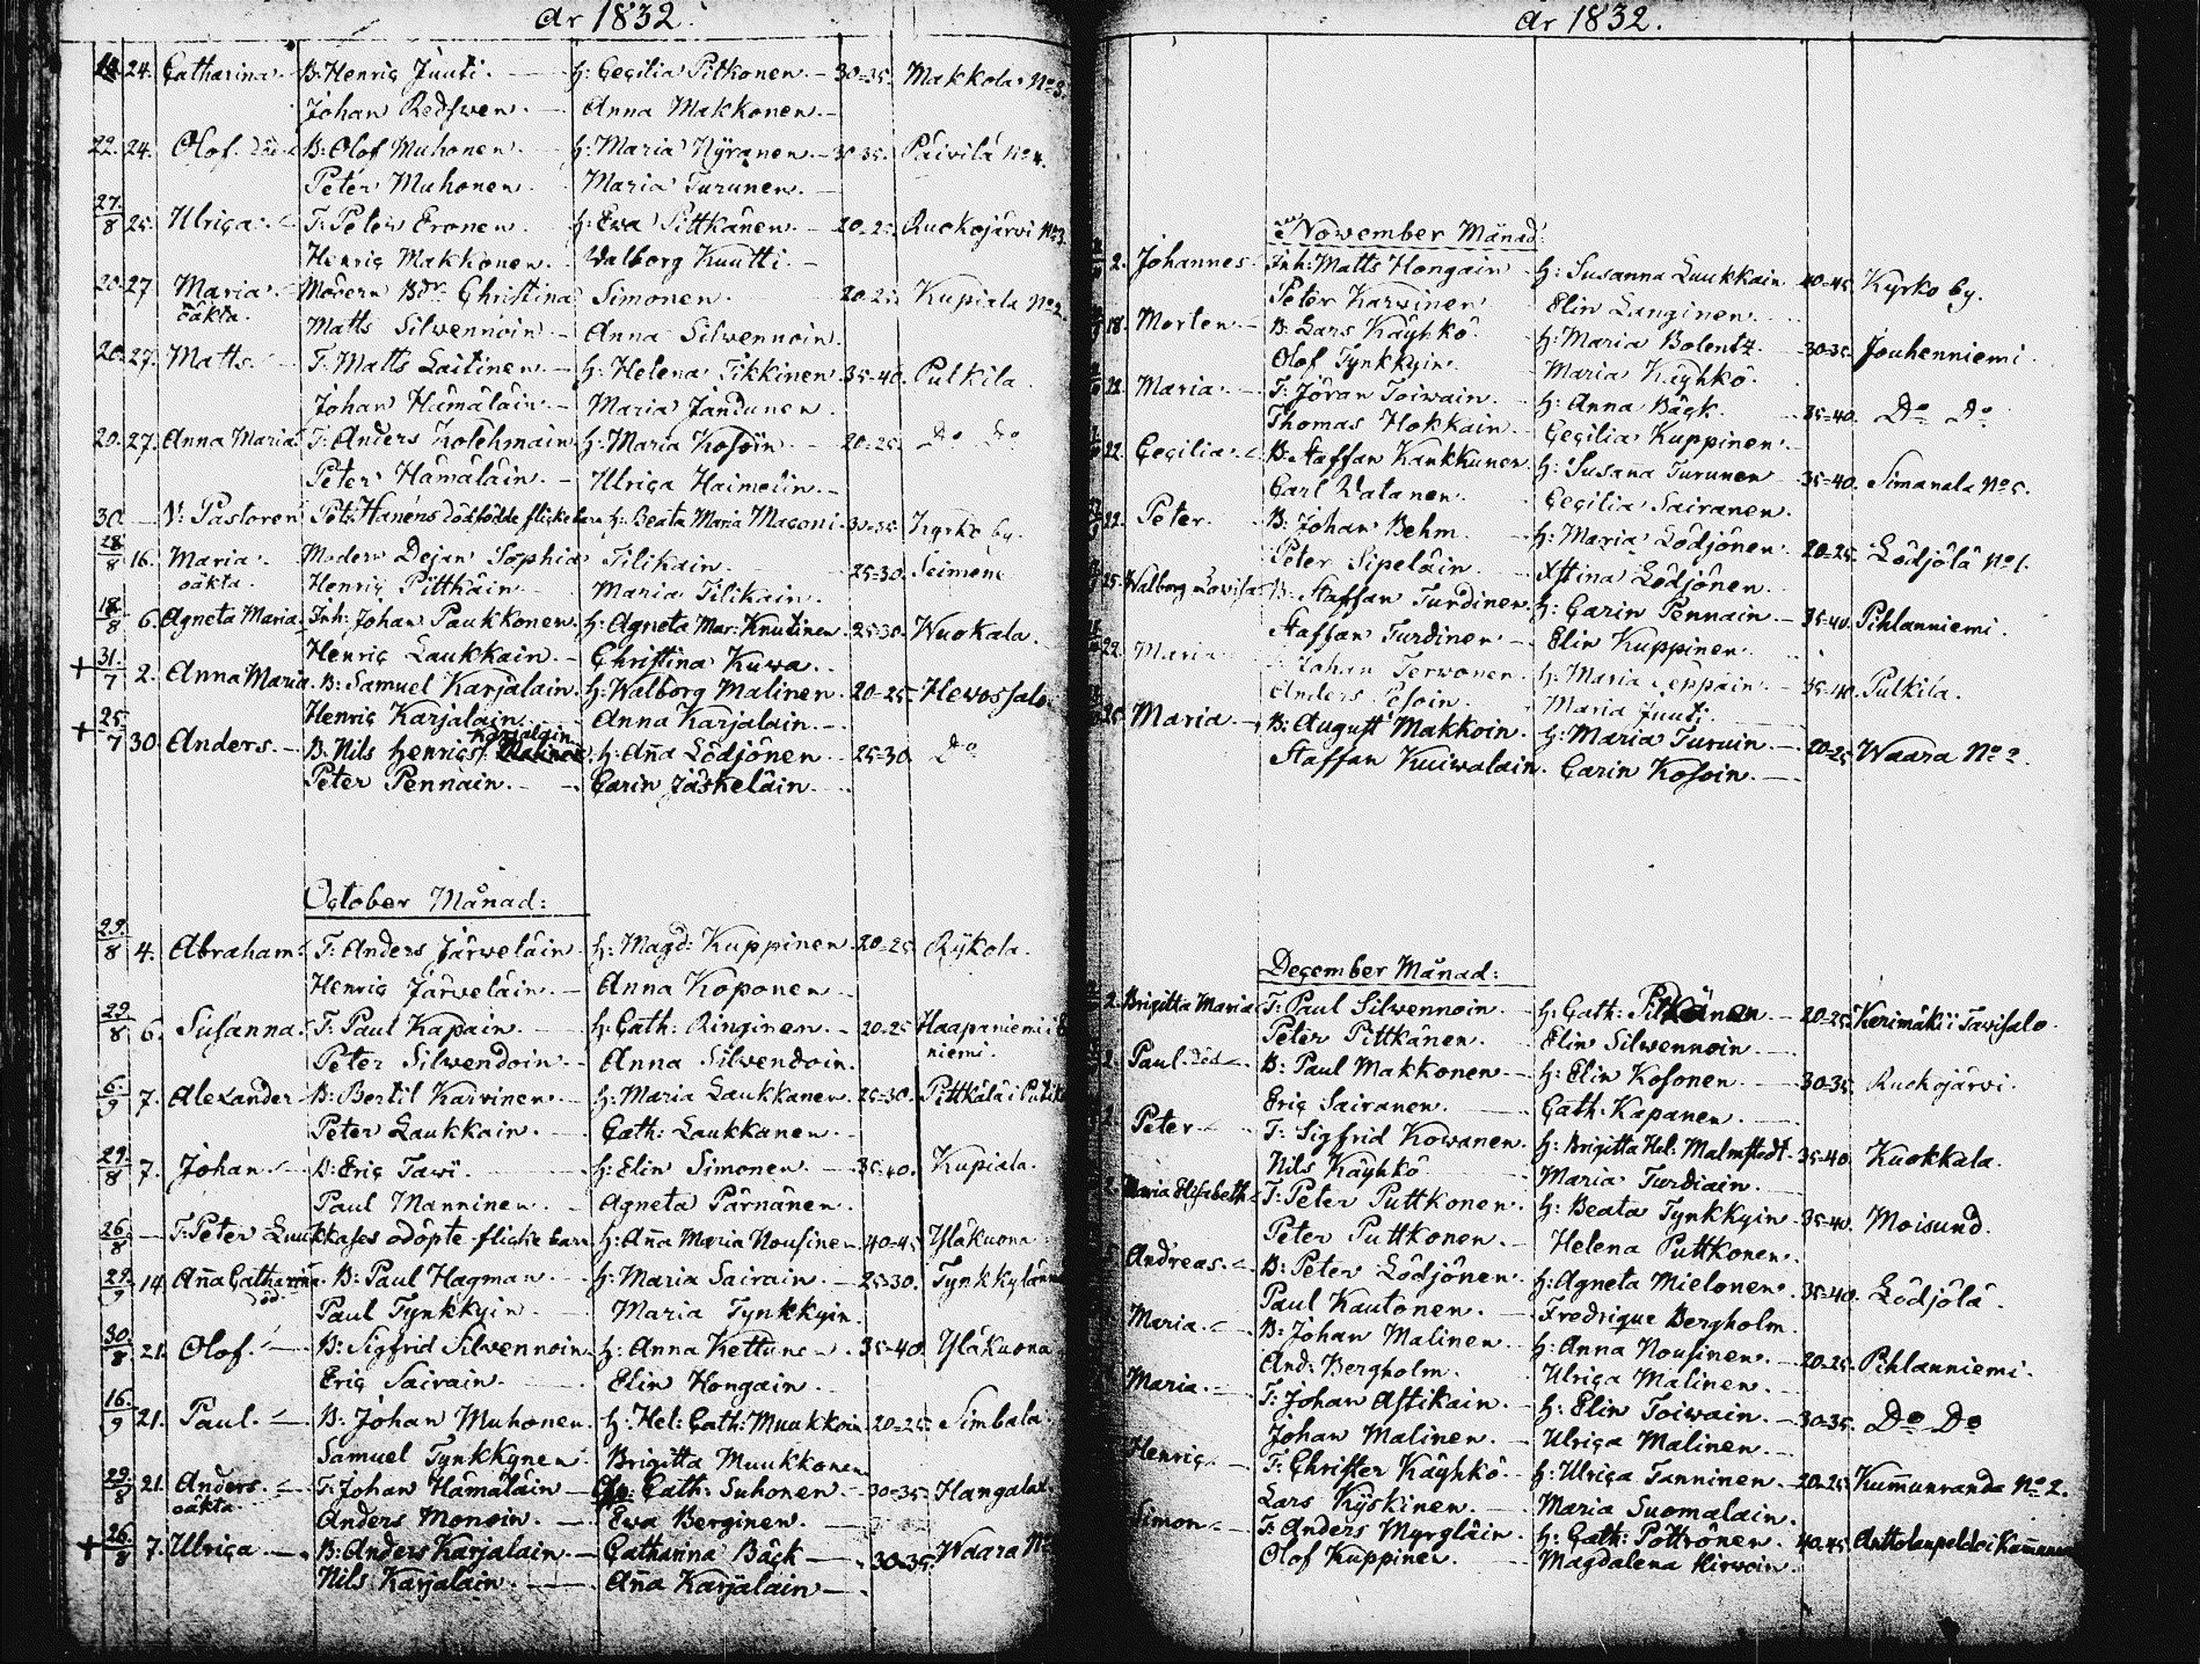 År 1832.
18. 24. Catharina. B: Henric Juuti. H: Cecilia Pitkonen. 30-35. Makkola No 3.
Johan Redswen. Anna Makkonen.
22. 24. Olof. död B: Olof Muhonen. H: Maria Nyränen. 30-35. Päivilä No 4.
Peter Muhonen. Maria Turunen.
27/8 25. Ulrica. T: Peter Eronen. H: Ewa Pittkänen. 20-25. Ruokojärvi No 3.
Henric Makkonen. Walborg Kuutti.
20. 27 Maria. Modern Bdr Christina Simonen. 20-25. Kupiala No 2.
oäkta. Matts Silwennoin. Anna Silwennoin.
20. 27. Matts. T: Matts Laitinen. H: Helena Tikkinen. 35-40. Putkila.
Johan Hämäläin. Maria Jandunen.
20. 27. Anna Maria. T: Anders Kolehmain. H: Maria Kosoin. 20-25. Do Do
Peter Hämäläin. Ulrica Haimelin.
30. V: Pastoren Petr Hanéns dödfödde flickebarn H: Beata Maria Maconi. 30-35. Kyrko by.
28/8 16. Maria. Modern Dejan Sophia Tilikain. 25-30. Seimene
oäkta. Henric Pittkäin. Maria Tilikain.
18/8 6. Agneta Maria. Inh: Johan Paukkonen. H: Agneta Mar: Knutinen. 25-30. Wuokala.
Henric Laukkain. Christina Kuwa.
+ 31/7 2. Anna Maria. B: Samuel Karjalain. H: Walborg Malinen. 20-25. Hevossalo.
Henric Karjalain. Anna Karjalain.
Karjalain
+ 25/7 30. Anders. B. Nils Henrics: Malinen. H: Anna Lödjönen. 25-30. Do
Peter Pennain. Carin Jäskeläin.
October Månad:
29/8 4. Abraham. T: Anders Järweläin. H: Magd: Kuppinen. 20-25. Rykola.
Henric Järweläin. Anna Koponen.
29/8 6. Susanna. T: Paul Kapain. H: Cath: Ringinen. 20-25 Haapaniemi i
niemi.
Peter Silwendoin. Anna Silwendoin.
6/9 7. Alexander B: Bertil Karvinen. H: Maria Laukkanen. 25-30. Pittkälä i
Peter Laukkain. Cath: Laukkanen.
29/8 7. Johan. B: Eric Tawi. H: Elin Simonen. 35-40. Kupiala.
Paul Manninen. Agneta Pärnänen.
26/8 T: Peter Luukkases odöpte flicke barn H: Anna Maria Nousinen. 40-45 Yläkuona
29/9 14. Anna Catharina. B: Paul Hagman. H: Maria Sairain. 25-30. Tynkkylänni
död. Paul Tynkkyin. Maria Tynkkyin.
30/8 21. Olof. B: Sigfrid Silwennoin H: Anna Kettunen. 35-40. Yläkuona
Eric Sairain. Elin Hongain.
16/9 21. Paul. B: Johan Muhonen. H: Hel: Cath: Muukkoin 20-25. Simbala.
Samuel Tynkkynen. Brigitta Muukkonen
29/8 21. Anders. T: Johan Hämäläin Cath: Suhonen. 30-35. Hangalax.
oäkta. Anders Monoin. Ewa Berginen.
+ 26/8 7. Ulrica B: Anders Karjalain. Catharina Bäck 30-35. Waara No
Nils Karjalain. Anna Karjalain
År 1832.
November Månad:
2. Johannes. Inh: Matts Hongain H: Susanna Luukkain 40-45. Kyrko by.
Peter Karvinen Elin Langinen.
18. Morten. B: Lars Käyhkö. H: Maria Bolentz. 30-35. Jouhenniemi.
Olof Tynkkyin. Maria Käyhkö.
22. Maria. T: Jöran Toiwain. H: Anna Bäck. 35-40. Do Do
Thomas Hokkain. Cecilia Kuppinen.
22. Cecilia. B: Staffan Kankkunen. H: Susana Turunen 35-40. Simanala No 5.
Carl Watanen. Cecilia Sairanen.
22. Peter. B: Johan Behm. H: Maria Lödjönen. 20-25. Lödjölä No 1.
Peter Sipeläin. Xstina Lödjönen.
25. Walborg Lovisa B: Staffan Turdinen. H: Carin Pennain. 35-40. Pihlanniemi.
Staffan Turdinen. Elin Kuppinen.
22. Maria Johan Terwonen. H: Maria Leppäin. 35-40. Putkila.
Anders Maria Juuti.
25. Maria. B: August Makkoin. H: Maria Turuin. 20-25 Waara No 2.
Staffan Kuiwalain. Carin Kosoin.
December Månad:
2. Brigitta Maria T: Paul Silwennoin. H: Cath: Pitkänen. 20-25. Kerimäki i Tavisalo.
Peter Pittkänen. Elin Silwennoin.
2. Paul. död B: Paul Makkonen H: Elin Kosonen. 30-35. Ruokojärvi.
Eric Sairanen. Cath: Kapanen.
2. Peter T: Sigfrid Kowanen. H: Brigitta Hel: Malmstedt. 35-40. Kuokkala.
Nils Käyhkö Maria Turdiain.
2. Maria Elisabeth T: Peter Puttkonen. H: Beata Tynkkyin. 35-40. Moisund.
Peter Puttkonen. Helena Puttkonen.
Andreas. B: Peter Lödjönen. H: Agneta Mielonen. 35-40. Lödjölä.
Paul Kautonen. Fredrique Bergholm.
Maria. B: Johan Malinen. H: Anna Nousinen. 20-25. Pihlanniemi.
And: Bergholm. Ulrica Malinen.
Maria. T: Johan Astikain. H: Elin Toiwain. 30-35. Do Do
Johan Malinen. Ulrica Malinen.
Henric T: Christer Käyhkö. H: Ulrica Tanninen 20-25. Kummunranda No 2.
Lars Kyskinen. Maria Suomalain.
Simon T: Anders Myrgläin H: Cath: Pottrönen. 40-45. Anttolanpeldo i
Olof Kuppinen. Magdalena Hirvoin.